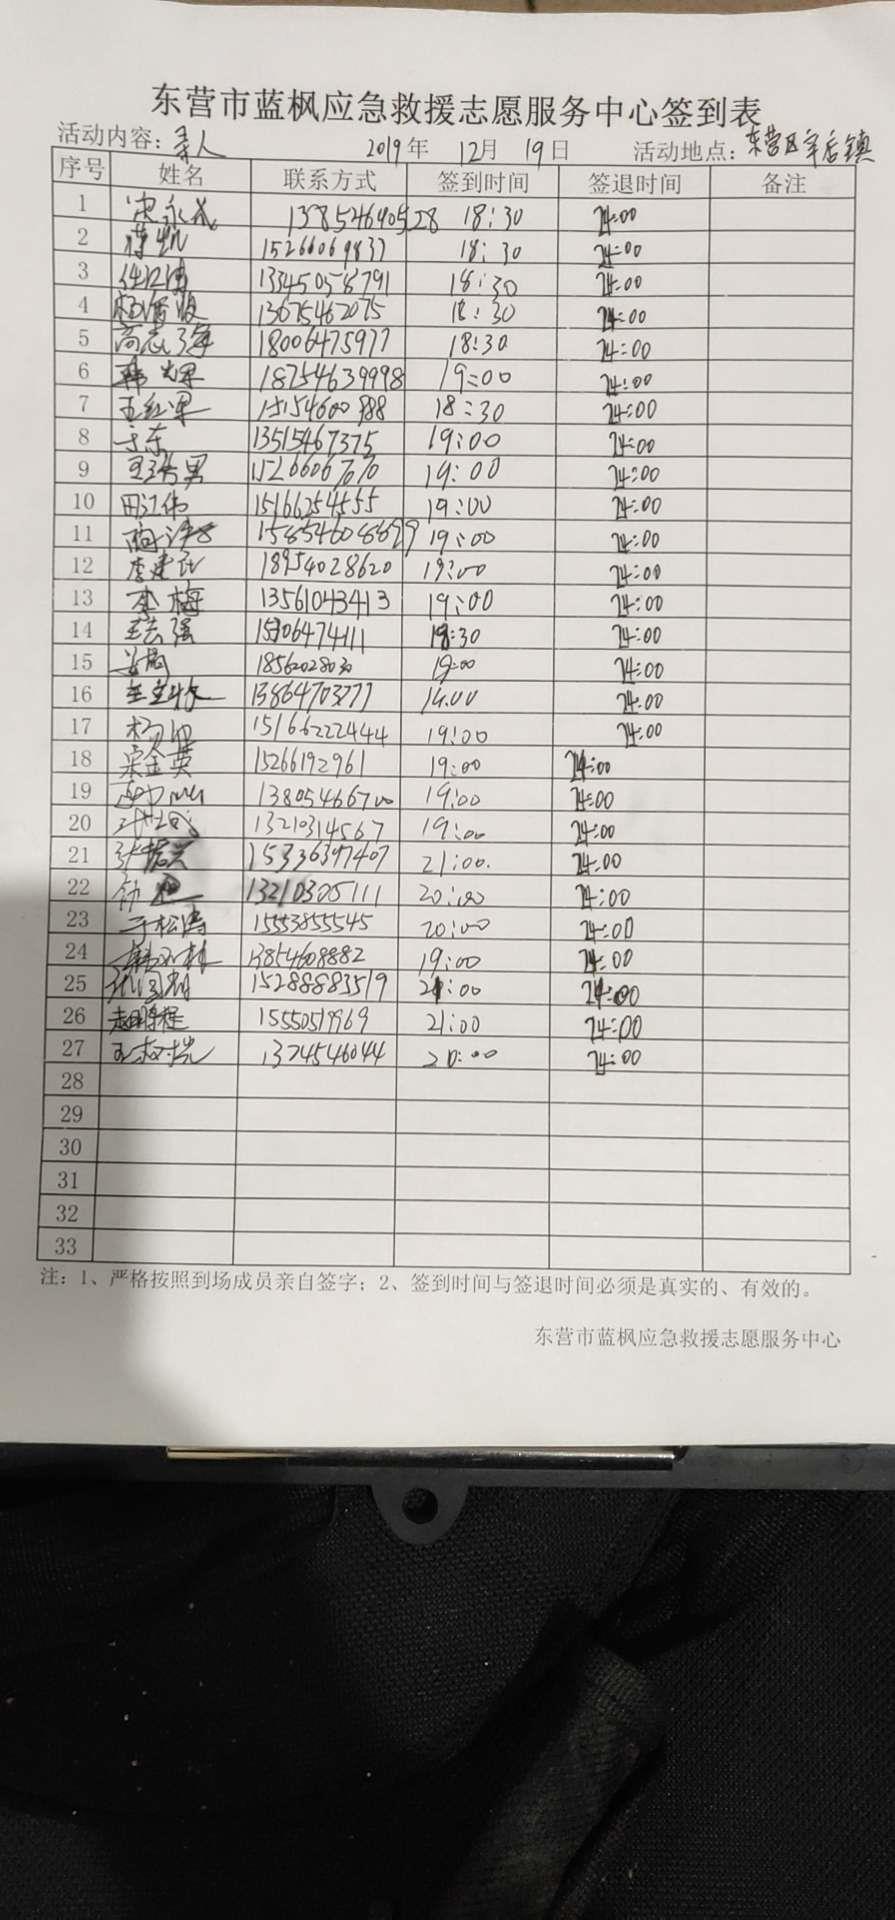 东营市蓝枫应急救援志愿服务中心签到表
活动内容：寻人 2019年 12月 19日 活动地点：东营区辛店镇
序号 姓名 联系方式 签到时间 签退时间 备注
1 18:30 24:00
2 蒋凯 15266069837 18:30 24:00
3 13345058791 18:30 24:00
4 13675462075 18:30 24:00
5 高志海 18006475977 18:30 24:00
6 韩光军 18754639998 19:00 24:00
7 王红军 15154600988 18:30 24:00
8 于东 13515467375 19:00 24:00
9 男 15266067070 19:00 24:00
10 田江伟 15166254555 19:00 24:00
11 19:00 24:00
12 李建民 18954028620 19:00 24:00
13 李梅 13561043413 19:00 24:00
14 强 15306474111 18:30 24:00
15 18562028030 19:00 24:00
16 13864703777 19:00 24:00
17 杨 15166222444 19:00 24:00
18 宋金英 15266192961 19:00 24:00
19 13805466700 19:00 24:00
20 13210314567 19:00 24:00
21 张振兴 15336397407 21:00. 24:00
22 13210305111 20:00 24:00
23 于松涛 15553855545 20:00 24:00
24 韩玉林 13854608882 19:00 24:00
25 15288883519 21:00 24:00
26 赵鹏程 15550519969 21:00 24:00
27 13745446044 20:00 24:00
28
29
30
31
32
33
注：1、严格按照到场成员亲自签字；2、签到时间与签退时间必须是真实的、有效的。
东营市蓝枫应急救援志愿服务中心